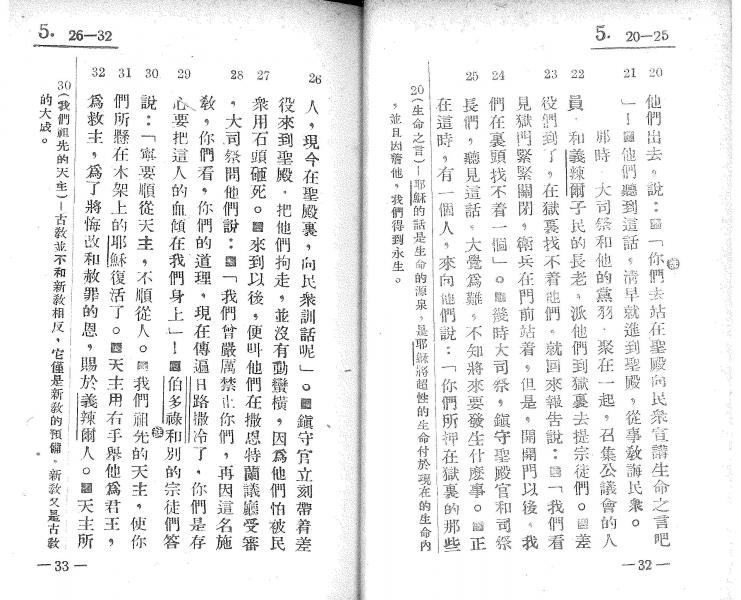 5. 20—25
20 他們出去,說:「你們去站在聖殿向民衆宣講生命之言吧
21 」—他們聽到這話,清早就進到聖殿,從事敎誨民衆。
那時,大司祭和他的黨羽,聚在一起,召集公議會的人
22 員,和義辣爾子民的長老,派他們到獄裏去提宗徒們。差
23 役們到了,在獄裏找不着他們。就回來報告說:「我們看
見獄門緊緊關閉,衛兵在門前站着,但是,開開門以後,我
24 們在裏頭找不着一個」。幾時大司祭,鎮守聖殿官和司祭
25 長們,聽見這話,大覺爲難,不知將來要發生什麼事。正
在這時,有一個人,來向他們說:「你們所押在獄裏的那些
20(生命之言)—耶穌的話是生命的源泉,是耶穌將超性的生命付於現在的生命內
,並且因着他,我們得到永生。
—32—
5. 26—32
26 人,現今在聖殿裏,向民衆訓話呢」。鎮守官立刻帶着差
役來到聖殿,把他們拘走,並沒有動蠻橫,因爲他們怕被民
27 衆用石頭砸死。來到以後,便叫他們在撒恩特蘭議廳受審
28 ,大司祭問他們說:「我們曾嚴厲禁止你們,再因這名施
敎,你們看,你們的道理,現在傳遍日路撒冷了,你們是存
29 心要把這人的血傾在我們身上」—伯多祿和別的宗徒們答
30 說:「寧要順從天主,不順從人。我們祖先的天主,使你
31 們所懸在木架上的耶穌復活了。天主用右手舉他爲君王,
32 爲救主,爲了將悔改和赦罪的恩,賜於義辣爾人。天主所
30(我們祖先的天主)—古敎並不和新敎相反,它僅是新敎的預備。新敎又是古敎
的大成。
—33—